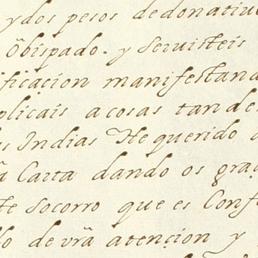 ydos pesos dedonatiuo
Obispado. y seruisteis
ificacion manifestand
plicais a cosas tan de
s Indias He querido
Carta dando os grac
te socorro que es Conf
lo de vrã atençion y